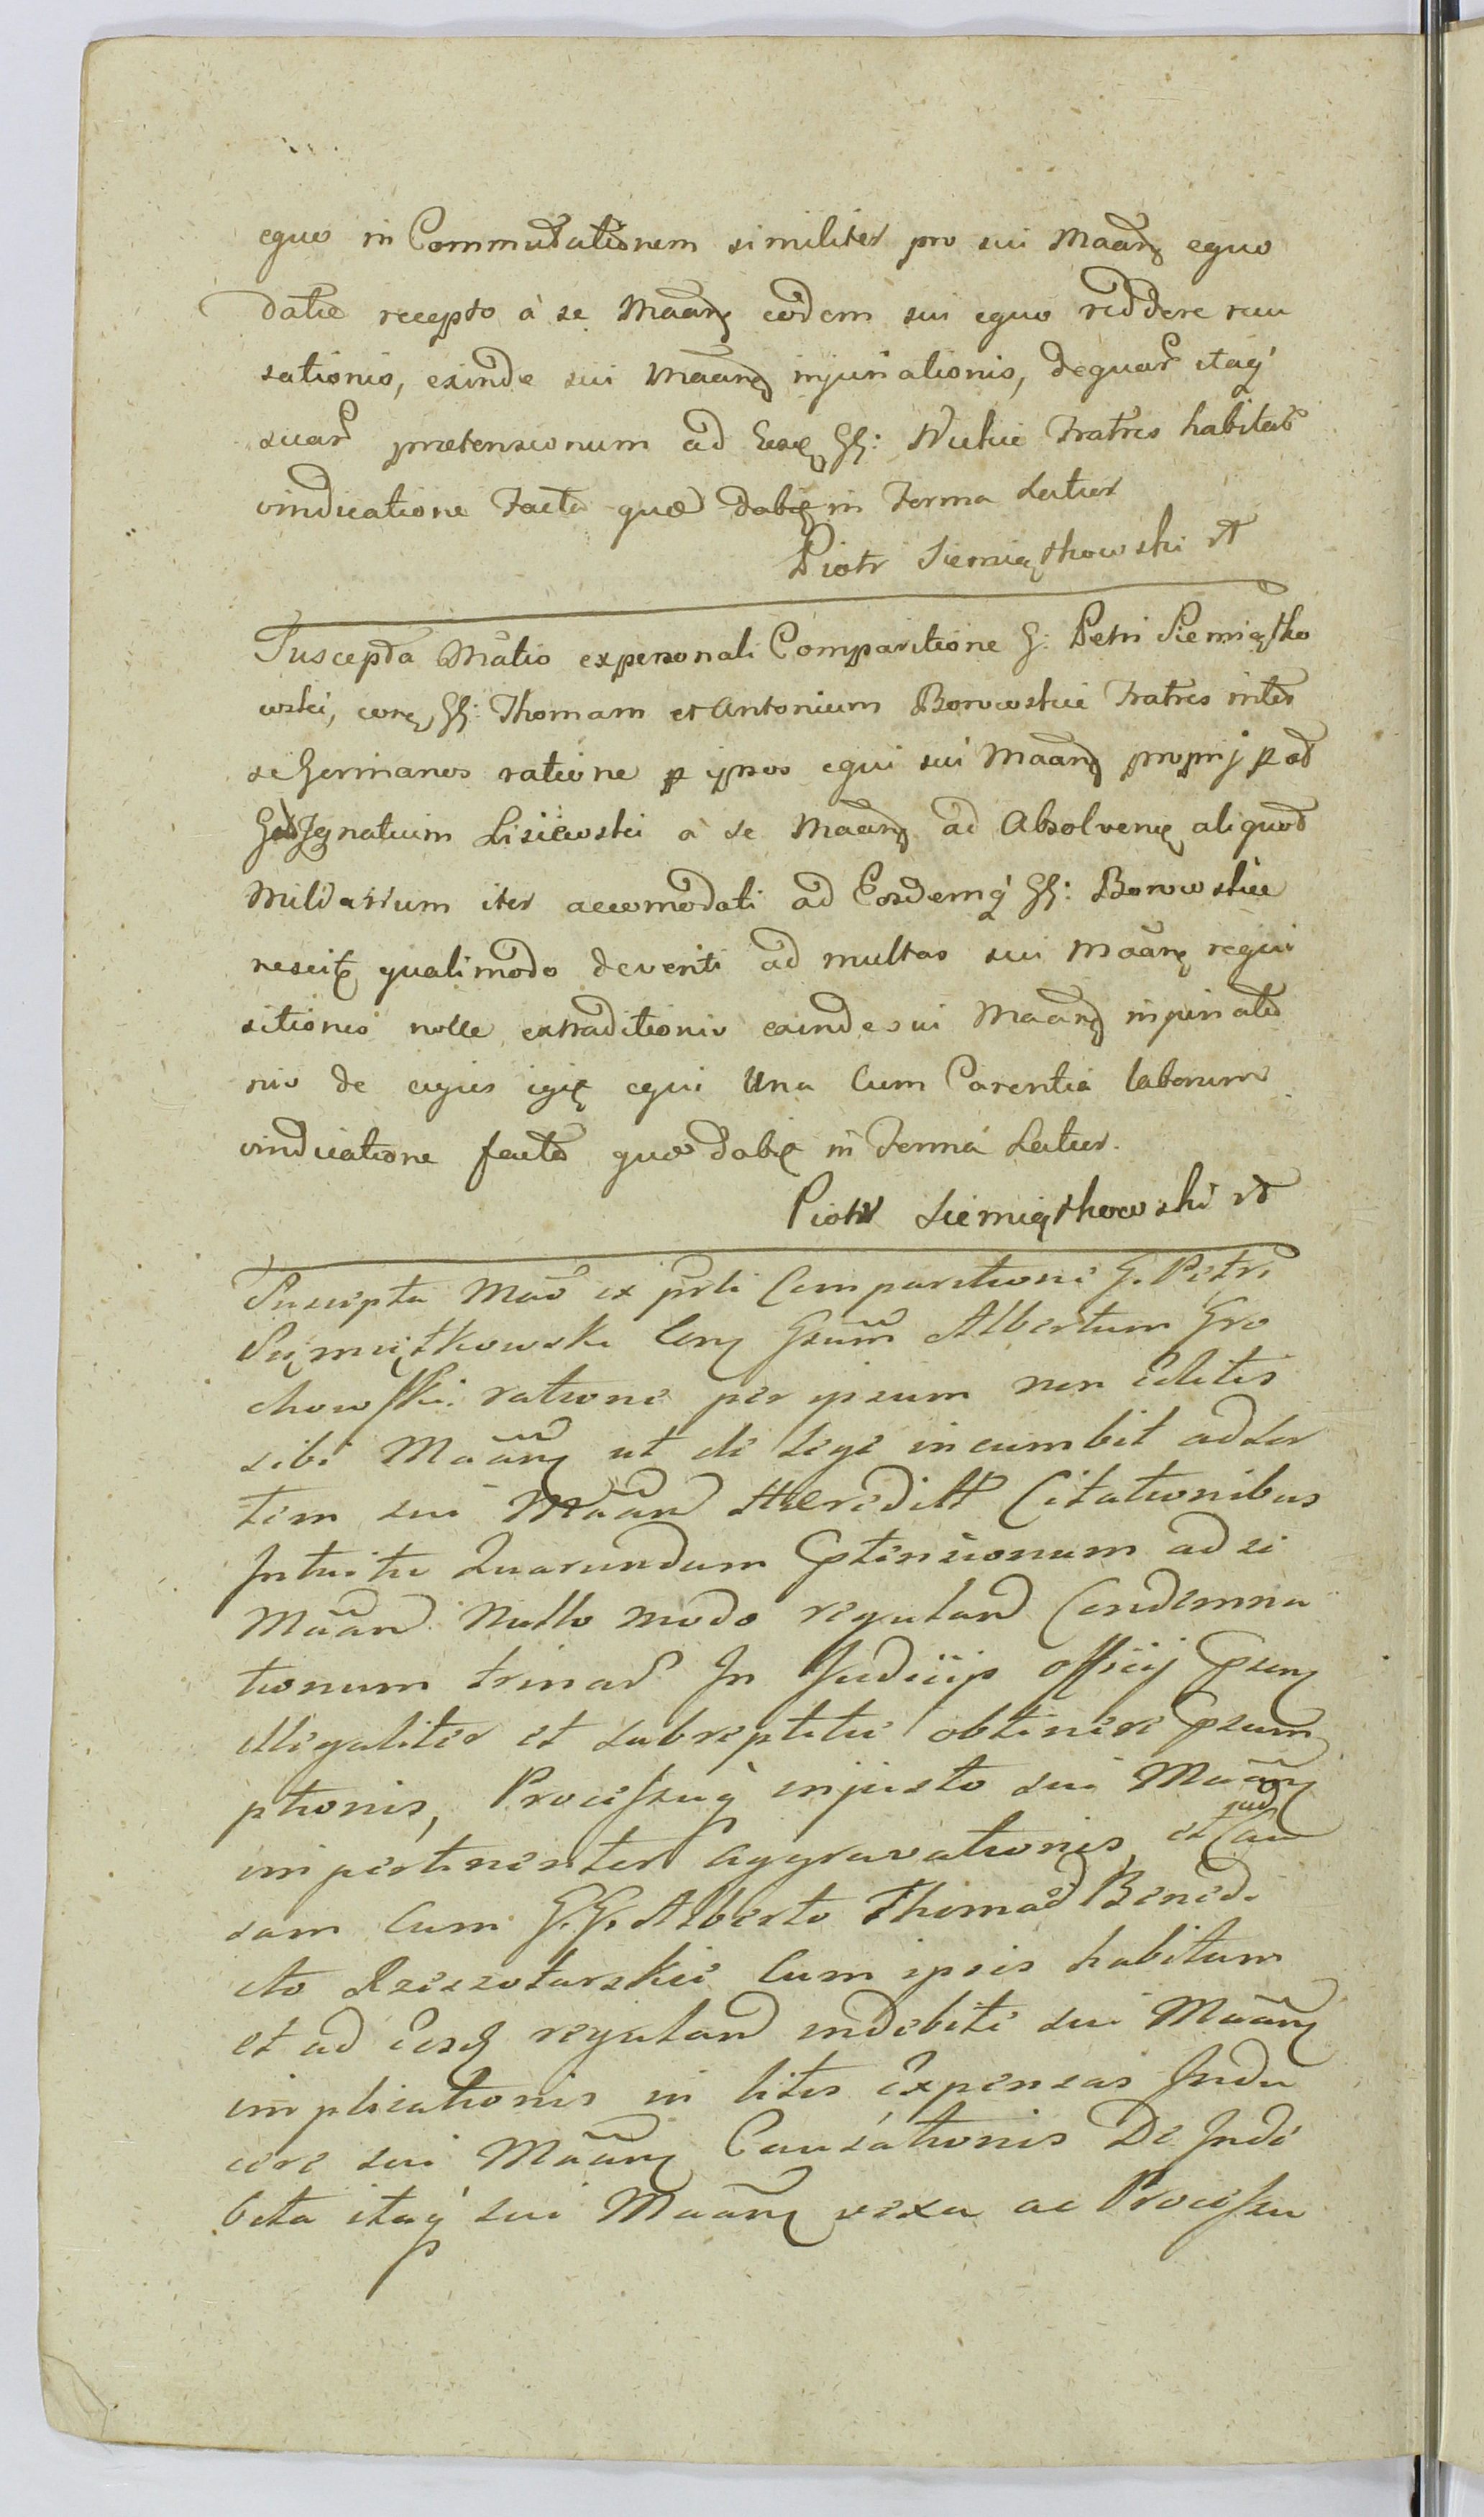 equo in Commutationem similiter pro sui Maañ equo
datæ recepto à se Maañ eodem sui equo reddere recu
sationis, exinde sui Maañ injuriationis, de quar̃ itaq́
suar̃ prætensionum ad Eosq̨ GG: Wickie Fratres habitar̃
vindicatione Facta quæ dabit̨ in Forma Latius
Piotr Siemiątkowski
Suscepta Mãtio ex personali Comparitione G: Petri Siemiątko
wski, cor̨ GG: Thomam et Antonium Borowskie Fratres inter
se Germanos ratione p ipsos equi sui Maañ proprij p ad
Gd Ignatium Lisiewski à se Maañ ad Absolven̨ aliquod
Miliarium iter accomodati ad Eosdemq́ GG: Borowskie
nescit̨ quali modo deventi ad multas sui Maañ requi
sitiones nolle extraditionis exinde sui Maañ injuriatio
nis de cujus igit̨ equi Una Cum Carentia laborum
vindicatione facta quæ dabit̨ in Forma Latius.
Piotr Siemiątkowski
Suscepta Mão ex prli Comparitione G. Petri
Siemiątkowski Con̨ Gsum̃ Albertum Gro
chowski ratione per ipsum non Editis
sibi Maañ ut de Lege incumbit ad Sor
tem sui Maañ Heredit̃ Citationibus
Intuitu Quarundum Ptensionum ad se
Maañ Nullo modo regulañ Condemna
tionum trinar̃ In Judiciis officij psen̨
illegaliter et subreptitie obtinere psum
ptionis, Processuq́ injusto sui Maañ
impertinenter aggravationis, et jud Cau
sam Cum G.G. Alberto Thoma Benedi
cto Rzeszotarskie Cum ipsis habitam
et ad Eosq̨ regulañ indebite sui Maañ
implicationis in lites Expensas Indu
cere sui Maañ Causationis De Inde
bita itaq́ sui Maañ vexa ac Processu